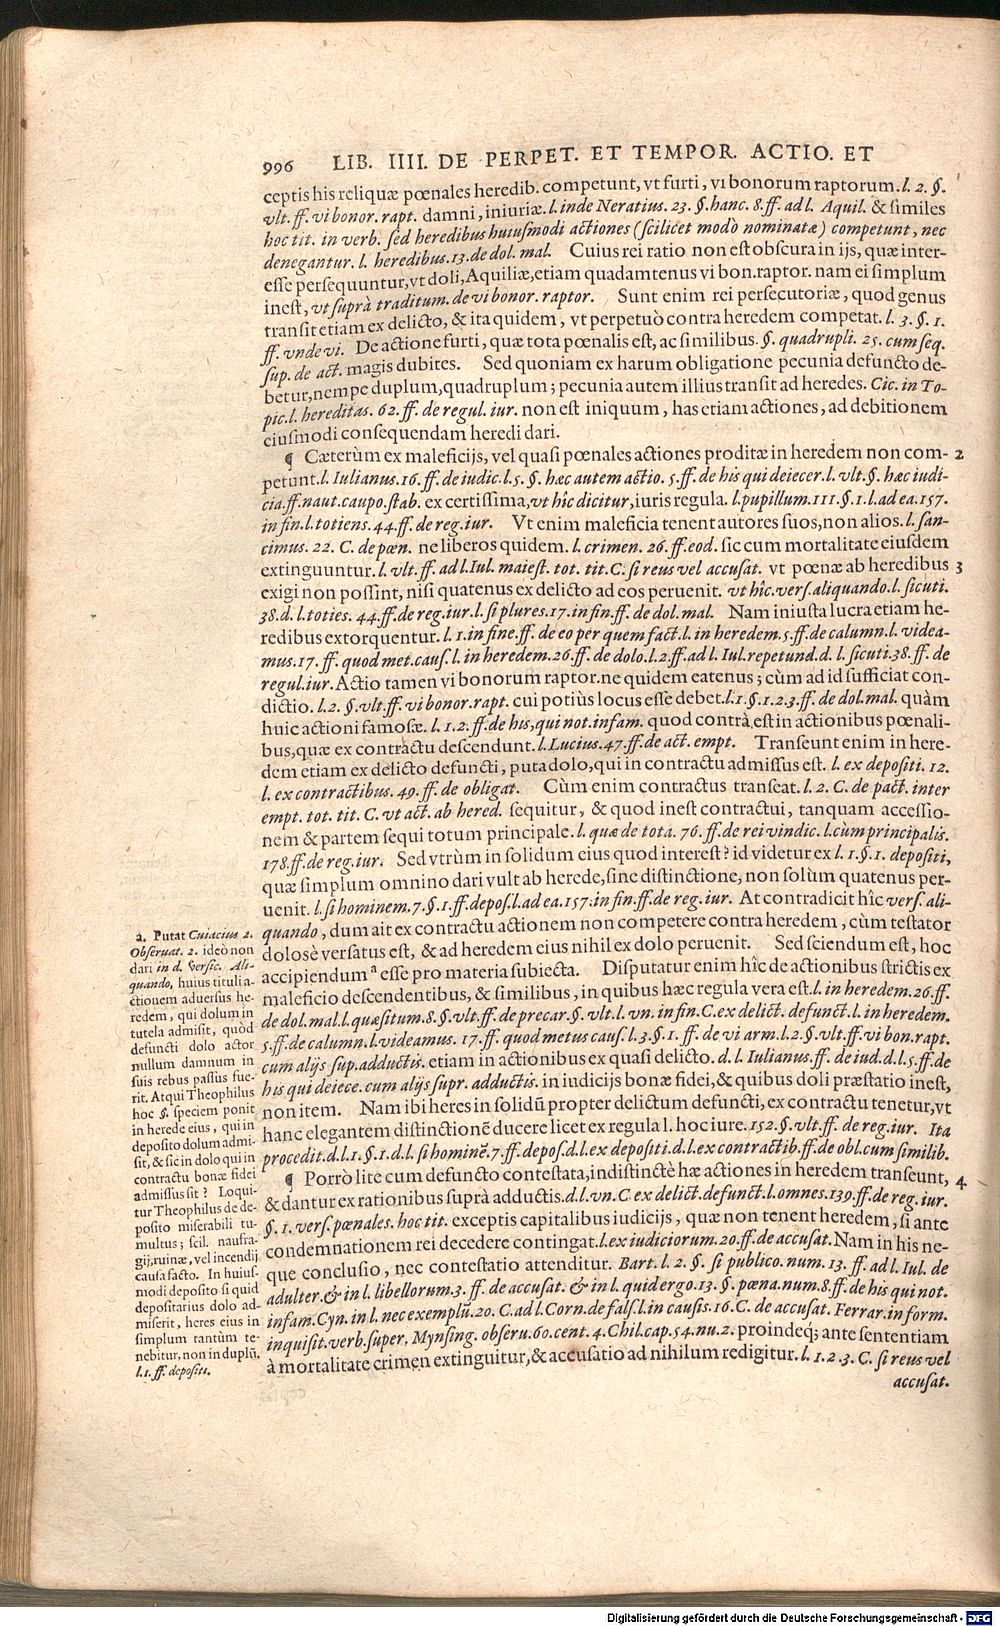 996 LIB. IIII. DE PERPET. ET TEMPOR. ACTIO. ET
ceptis his reliquæ pœnales heredib. competunt, vt furti, vi bonorum raptorum. l. 2. §.
vlt. ff. vi bonor. rapt. damni, iniuriæ. l. inde Neratius. 23. §. hanc. 8. ff. ad l. Aquil. & similes
hoc tit. in verb. sed heredibus huiusmodi actiones (scilicet modò nominatæ) competunt, nec
denegantur. l. heredibus. 13. de dol. mal. Cuius rei ratio non est obscura in ijs, quæ inter-
esse persequuntur, vt doli, Aquiliæ, etiam quadamtenus vi bon. raptor. nam ei simplum
inest, vt suprà traditum. de vi bonor. raptor. Sunt enim rei persecutoriæ, quod genus
transit etiam ex delicto, & ita quidem, vt perpetuò contra heredem competat. l. 3. §. 1.
ff. vnde vi. De actione furti, quæ tota pœnalis est, ac similibus. §. quadrupli. 25. cum seq.
sup. de act. magis dubites. Sed quoniam ex harum obligatione pecunia defuncto de-
betur, nempe duplum, quadruplum; pecunia autem illius transit ad heredes. Cic. in To-
pic. l. hereditas. 62. ff. de regul. iur. non est iniquum, has etiam actiones, ad debitionem
eiusmodi consequendam heredi dari.
¶ Cæterùm ex maleficijs, vel quasi pœnales actiones proditæ in heredem non com- 2
petunt. l. Iulianus. 16. ff. de iudic. l. 5. §. hæc autem actio. 5. ff. de his qui deiecer. l. vlt. §. hæc iudi-
cia. ff. naut. caupo. stab. ex certissima, vt hîc dicitur, iuris regula. l. pupillum. 111. §. 1. l. ad ea. 157.
in fin. l. totiens. 44. ff. de reg. iur. Vt enim maleficia tenent autores suos, non alios. l. san-
cimus. 22. C. de pœn. ne liberos quidem. l. crimen. 26. ff. eod. sic cum mortalitate eiusdem
extinguuntur. l. vlt. ff. ad l. Iul. maiest. tot. tit. C. si reus vel accusat. vt pœnæ ab heredibus 3
exigi non possint, nisi quatenus ex delicto ad eos peruenit. vt hîc. vers. aliquando. l. sicuti.
38. d. l. toties. 44. ff. de reg. iur. l. si plures. 17. in fin. ff. de dol. mal. Nam iniusta lucra etiam he-
redibus extorquentur. l. 1. in fine. ff. de eo per quem fact. l. in heredem. 5. ff. de calumn. l. videa-
mus. 17. ff. quod met. caus. l. in heredem. 26. ff. de dolo. l. 2. ff. ad l. Iul. repetund. d. l. sicuti. 38. ff. de
regul. iur. Actio tamen vi bonorum raptor. ne quidem eatenus; cùm ad id sufficiat con-
dictio. l. 2. §. vlt. ff. vi bonor. rapt. cui potiùs locus esse debet. l. 1. §. 1. 2. 3. ff. de dol. mal. quàm
huic actioni famosæ. l. 1. 2. ff. de his, qui not. infam. quod contrà, est in actionibus pœnali-
bus, quæ ex contractu descendunt. l. Lucius. 47. ff. de act. empt. Transeunt enim in here-
dem etiam ex delicto defuncti, puta dolo, qui in contractu admissus est. l. ex depositi. 12.
l. ex contractibus. 49. ff. de obligat. Cùm enim contractus transeat. l. 2. C. de pact. inter
empt. tot. tit. C. vt act. ab hered. sequitur, & quod inest contractui, tanquam accessio-
nem & partem sequi totum principale. l. quæ de tota. 76. ff. de rei vindic. l. cùm principalis.
178. ff. de reg. iur. Sed vtrùm in solidum eius quod interest? id videtur ex l. 1. §. 1. depositi,
quæ simplum omnino dari vult ab herede, sine distinctione, non solùm quatenus per-
uenit. l. si hominem. 7. §. 1. ff. depos. l. ad ea. 157. in fin. ff. de reg. iur. At contradicit hîc vers. ali-
quando, dum ait ex contractu actionem non competere contra heredem, cùm testator
dolosè versatus est, & ad heredem eius nihil ex dolo peruenit. Sed sciendum est, hoc
accipiendum a esse pro materia subiecta. Disputatur enim hîc de actionibus strictis ex
maleficio descendentibus, & similibus, in quibus hæc regula vera est. l. in heredem. 26. ff.
de dol. mal. l. quæsitum. 8. §. vlt. ff. de precar. §. vlt. l. vn. in fin. C. ex delict. defunct. l. in heredem.
5. ff. de calumn. l. videamus. 17. ff. quod metus caus. l. 3. §. 1. ff. de vi arm. l. 2. §. vlt. ff. vi bon. rapt.
cum alijs sup. adductis. etiam in actionibus ex quasi delicto. d. l. Iulianus. ff. de iud. d. l. 5. ff. de
his qui deiece. cum alijs supr. adductis. in iudicijs bonæ fidei, & quibus doli præstatio inest,
non item. Nam ibi heres in solidū propter delictum defuncti, ex contractu tenetur, vt
hanc elegantem distinctionē ducere licet ex regula l. hoc iure. 152. §. vlt. ff. de reg. iur. Ita
procedit. d. l. 1. §. 1. d. l. si hominē. 7. ff. depos. d. l. ex depositi. d. l. ex contractib. ff. de obl. cum similib.
¶ Porrò lite cum defuncto contestata, indistinctè hæ actiones in heredem transeunt, 4
& dantur ex rationibus suprà adductis. d. l. vn. C. ex delict. defunct. l. omnes. 139. ff. de reg. iur.
§. 1. vers. pœnales. hoc tit. exceptis capitalibus iudicijs, quæ non tenent heredem, si ante
condemnationem rei decedere contingat. l. ex iudiciorum. 20. ff. de accusat. Nam in his ne-
que conclusio, nec contestatio attenditur. Bart. l. 2. §. si publico. num. 13. ff. ad l. Iul. de
adulter. & in l. libellorum. 3. ff. de accusat. & in l. quid ergo. 13. §. pœna. num. 8. ff. de his qui not.
infam. Cyn. in l. nec exemplū. 20. C. ad l. Corn. de fals. l. in causis. 16. C. de accusat. Ferrar. in form.
inquisit. verb. super. Mynsing. obseru. 60. cent. 4. Chil. cap. 54. nu. 2. proindeq; ante sententiam
à mortalitate crimen extinguitur, & accusatio ad nihilum redigitur. l. 1. 2. 3. C. si reus vel
accusat.
a. Putat Cuiacius 2.
Obseruat. 2. ideò non
dari in d. versic. Ali-
quando, huius tituli a-
ctionem aduersus he-
redem, qui dolum in
tutela admisit, quòd
defuncti dolo actor
nullum damnum in
suis rebus passus fue-
rit. Atqui Theophilus
hoc §. speciem ponit
in herede eius, qui in
deposito dolum admi-
sit, & sic in dolo qui in
contractu bonæ fidei
admissus sit? Loqui-
tur Theophilus de de-
posito miserabili tu-
multus; scil. naufra-
gij, ruinæ, vel incendij
causa facto. In huius-
modi deposito si quid
depositarius dolo ad-
miserit, heres eius in
simplum tantùm te-
nebitur, non in duplū.
l. 1. ff. depositi.
Digitalisierung gefördert durch die Deutsche Forschungsgemeinschaft - DFG